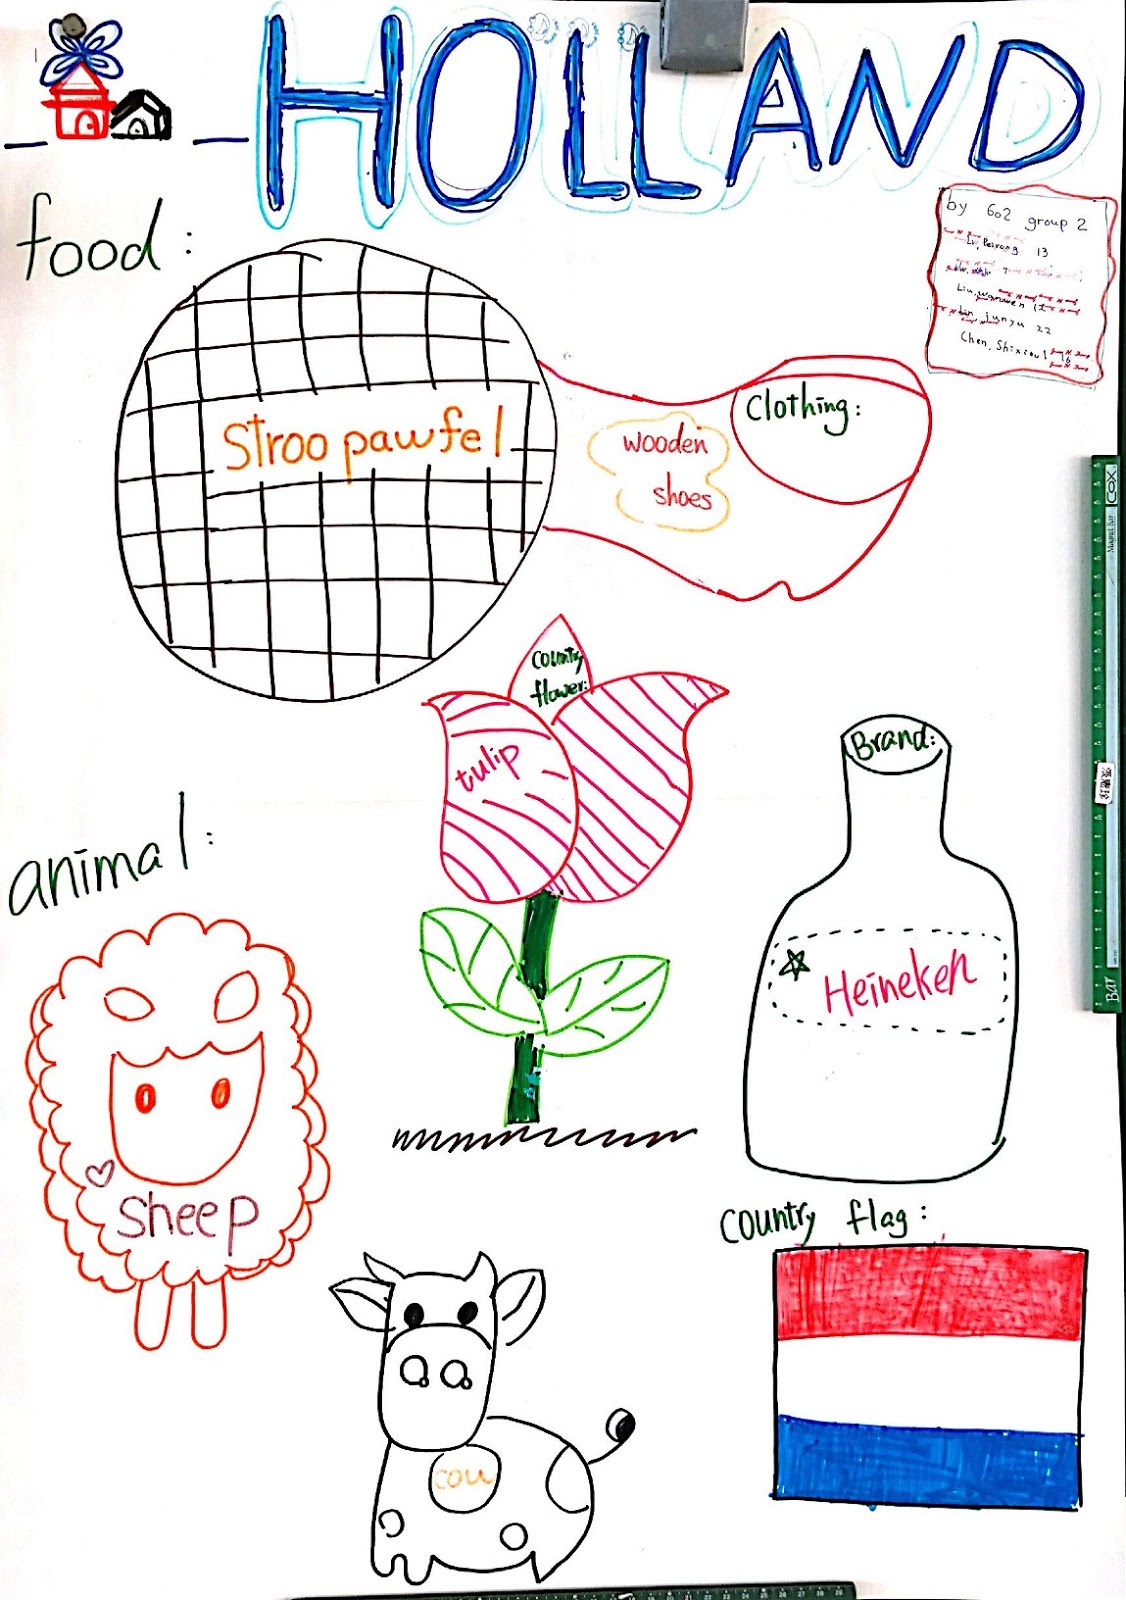 HOLLAND
by 602 group 2
13
Lin, junyu 22
Chen, Shixiou 16
food:
Stroopawfel
Clothing:
wooden
shoes
country
flower:
tulip
Brand:
Heineken
animal:
sheep
cow
country flag:
COX
Bar